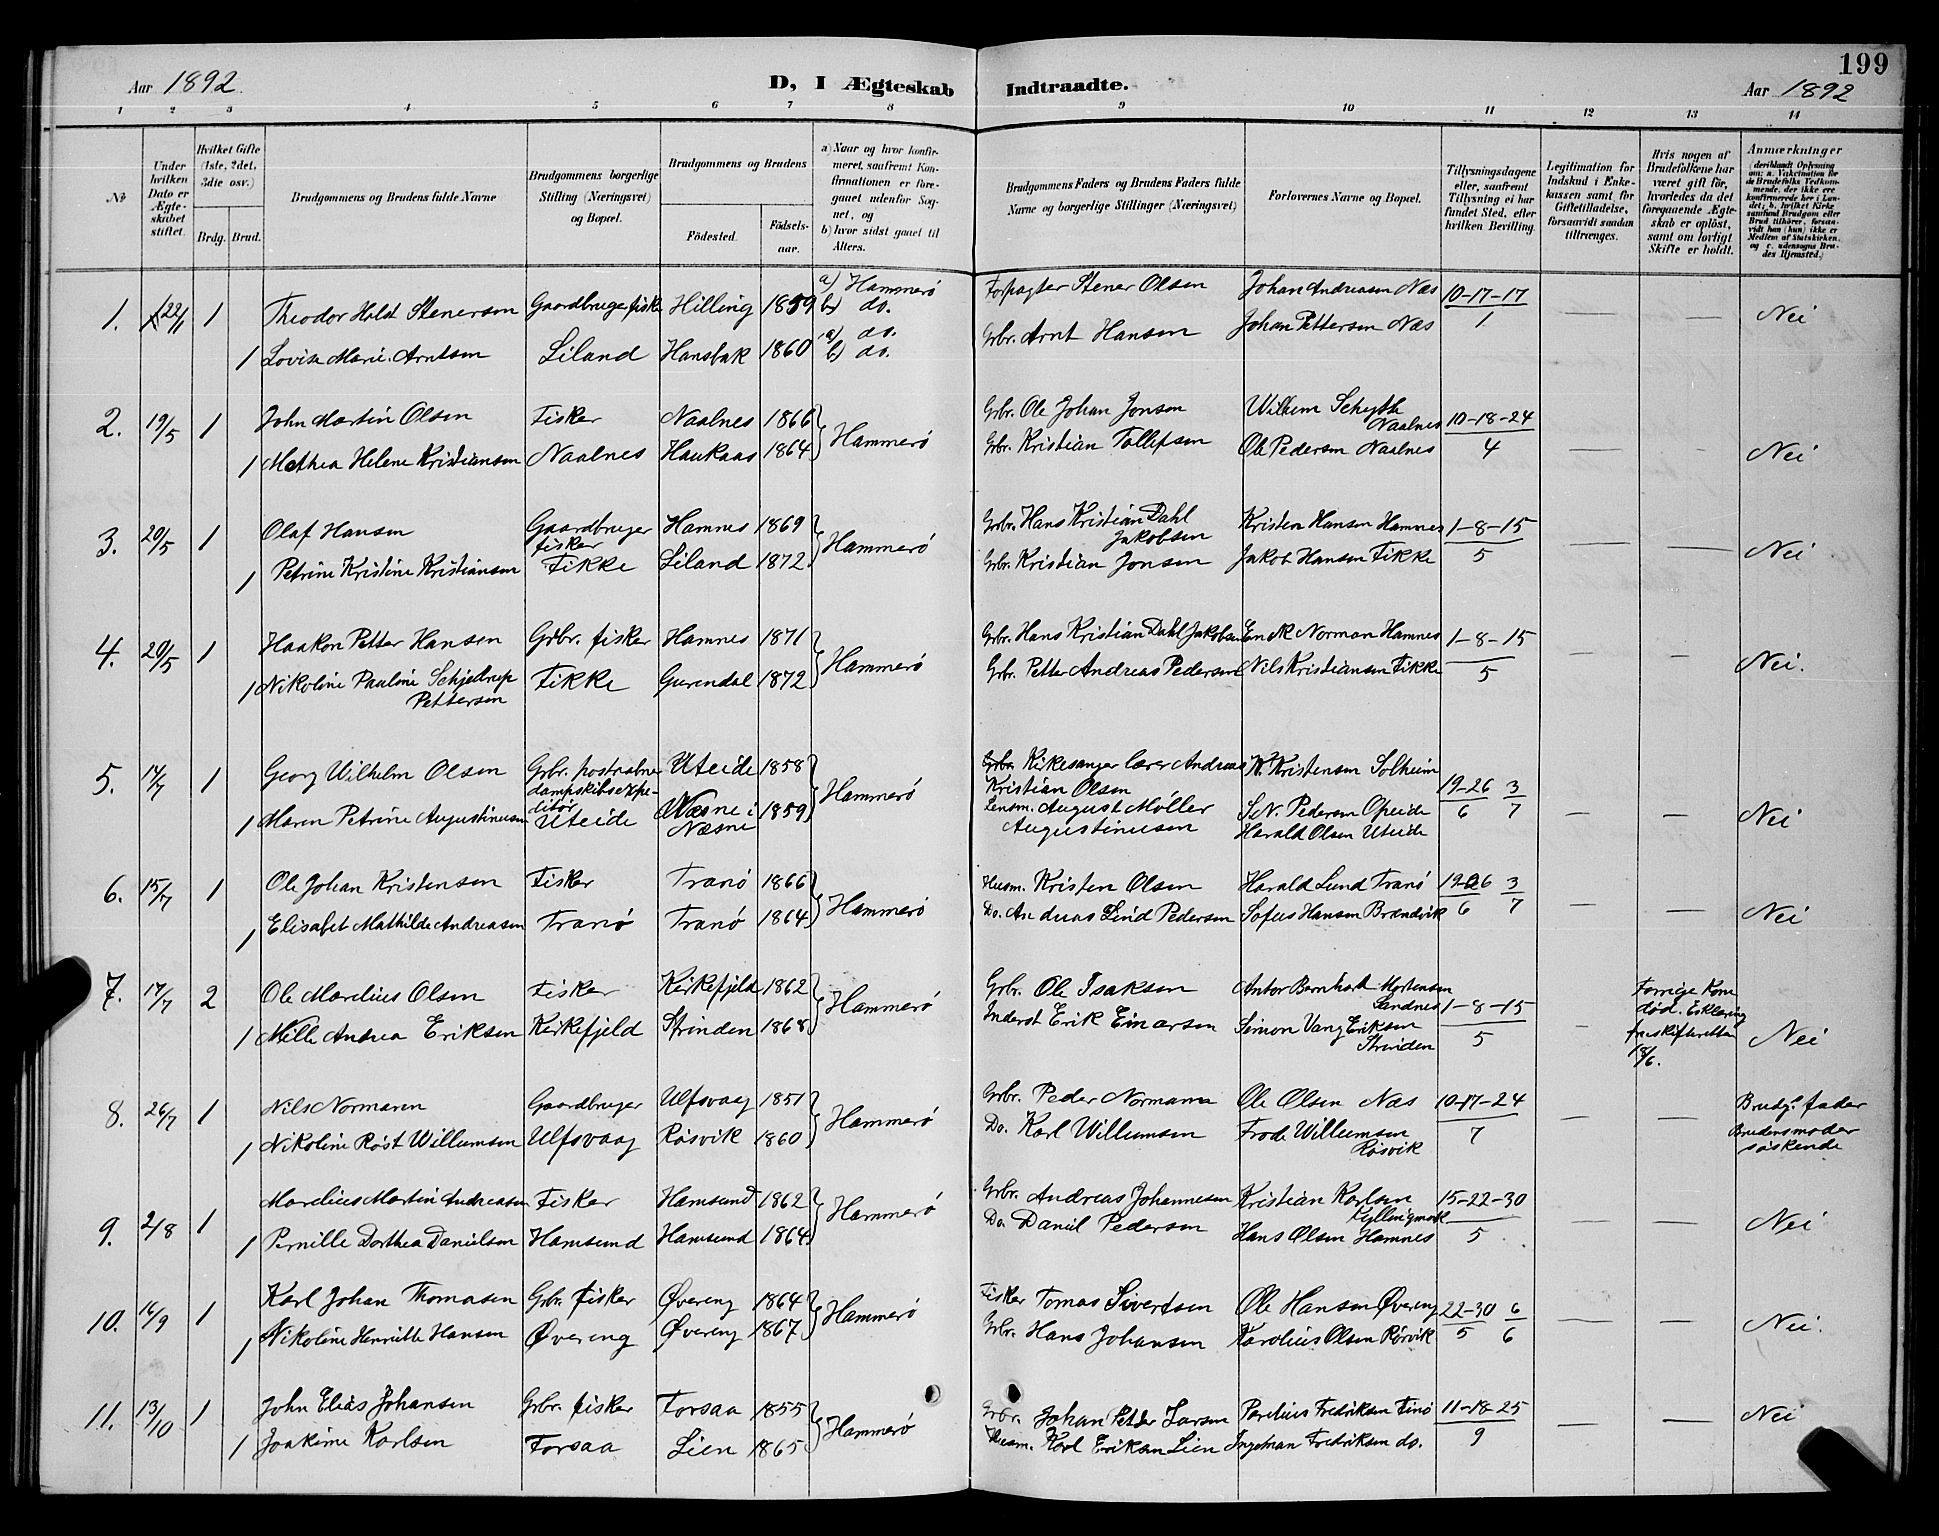 199
Aar 1892.
D, I Ægteskab Indtraadte.
Aar 1892
1 2 3 4 5 6 7 8 9 10 11 12 13 14
No
Under hvilken Dato er Ægteskabet stiftet.
Hvilket Gifte (1ste, 2det, 3dte osv.)
Brdg. Brud.
Brudgommens og Brudens fulde Navne
Brudgommens borgerlige Stilling (Næringsvei) og Bopæl.
Brudgommens og Brudens
Fødested. Fødselsaar.
a) Naar og hvor konfirmeret, saafremt Konfirmationen er foregaaet udenfor Sognet, og
b) hvor sidst gaaet til Alters.
Brudgommens Faders og Brudens Faders fulde Navne og borgerlige Stillinger (Næringsvei)
Forlovernes Navne og Bopæl.
Tillysningsdagene eller, saafremt Tillysning ei har fundet Sted, efter hvilken Bevilling.
Legitimation for Indskud i Enkekassen samt for Giftetilladelse, forsaavidt saadan tiltrænges.
Hvis nogen af Brudefolkene har været gift før, hvorledes da det foregaaende Ægteskab er opløst, samt om lovligt Skifte er holdt.
Anmærkninger
(deriblandt Oplysning om: a. Vakcination for de Brudefolks Vedkommende, der ikke ere konfirmerede her i Landet; b. hvilket Kirkesamfund Brudgom eller Brud tilhører, forsaavidt han (hun) ikke er Medlem af Statskirken, og c. udensogns Brudes Hjemsted.)
1. 22/1 1 Theodor Holst Stenersen Gaardbruger fisker Hilling 1859 a) Hammerø b) do. Forpagter Stener Olsen Johan Andreasen Næs 10-17-17 — — Nei
1 Lovise Marie Arntsen Liland Hansbak 1860 a) do. b) do. Grbr. Arnt Hansen Johan Pettersen Næs 1
2. 19/5 1 John Martin Olsen Fisker Naalnes 1866 Hammerø Grbr. Ole Johan Jonsen Wilhem Schytte Naalnes 10-18-24 — — Nei
1 Mathea Helene Kristiansen Naalnes Haukaas 1864 Grbr. Kristian Tollefsen Ole Pedersen Naalnes 4
3. 20/5 1 Olaf Hansen Gaardbruger fisker Hamnes 1869 Hammerø Grbr. Hans Kristian Dahl Jakobsen Kristen Hansen Hamnes 1-8-15 — — Nei
1 Petrine Kristine Kristiansen Fikke Liland 1872 Grbr. Kristian Jonsen Jakob Hansen Fikke 5
4. 20/5 1 Haakon Petter Hansen Grbr. fisker Hamnes 1871 Hammerø Grbr. Hans Kristian Dahl Jakobsen Norman Hamnes 1-8-15 — — Nei.
1 Nikoline Pauline Schjeltrup Pettersen Fikke Gurendal 1872 Grbr. Petter Andreas Pedersen Nils Kristiansen Fikke 5
5. 14/7 1 Georg Wilhelm Olsen Grbr. postaabner dampskibsexpeditør Uteide 1858 Hammerø Kirkesanger lærer Andreas Kristian Olsen K. Kristensen Solheim 19-26 3
1 Maren Petrine Augustinusen Uteide Næsne i Næsne 1859 Lensm. August Møller Augustinusen S.N. Pedersen Opeide 6 7 — — Nei
Harald Olsen Uteide
6. 15/7 1 Ole Johan Kristensen Fisker Tranø 1866 Hammerø Husm. Kristen Olsen Harald Lund Tranø 19-26 3
1 Elisabet Mathilde Andreasen Tranø Tranø 1864 Do. Andreas Lind Pedersen Sofus Hansen Brændvik 6 7 — — Nei
7. 17/7 2 Ole Marelius Olsen Fisker Kirkefjeld 1862 Hammerø Grbr. Ole Isaksen Anton Bernhart Mortensen Sandnes 1-8-15 — Forrige Kone død. Erklæring fra skifteretten 18/6. Nei
1 Mille Andrea Eriksen Kirkefjeld Strinden 1868 Inderst Erik Einarsen Simon Vang Eriksen Strinden 5
8. 26/7 1 Nils Normann Gaardbruger Ulfsvaag 1851 Hammerø Grbr. Peder Normann Ole Olsen Næs 10-17-24 — — Brudg. fader Brudens moder søskende
1 Nikoline Røst Willumsen Ulfsvaag Røsvik 1860 Do. Karl Willumsen Frode Willumsen Røsvik 7
9. 2/8 1 Marelius Martin Andreasen Fisker Hamsund 1862 Hammerø Grbr. Andreas Johannesen Kristian Karlsen Kyllingmark 15-22-30 — — Nei
1 Pernille Dorthea Danielsen Hamsund Hamsund 1864 Do. Daniel Pedersen Hans Olsen Hamnes 5
10. 16/9 1 Karl Johan Thomasen Grbr. fisker Øvereng 1864 Hammerø Fisker Tomas Sivertsen Ole Hansen Øvereng 22-30 6
1 Nikoline Henritte Hansen Øvereng Øvereng 1867 Grbr. Hans Johansen Karolius Olsen Rørvik 5 6 — — Nei.
11. 13/10 1 John Elias Johansen Grbr. fisker Forsaa 1855 Hammerø Grbr. Johan Petter Larsen Parelius Fredriksen Finø 11-18-25 — — Nei
1 Joakime Karlsen Forsaa Lien 1865 Husm. Karl Eriksen Lien Ingelman Fredriksen do. 9